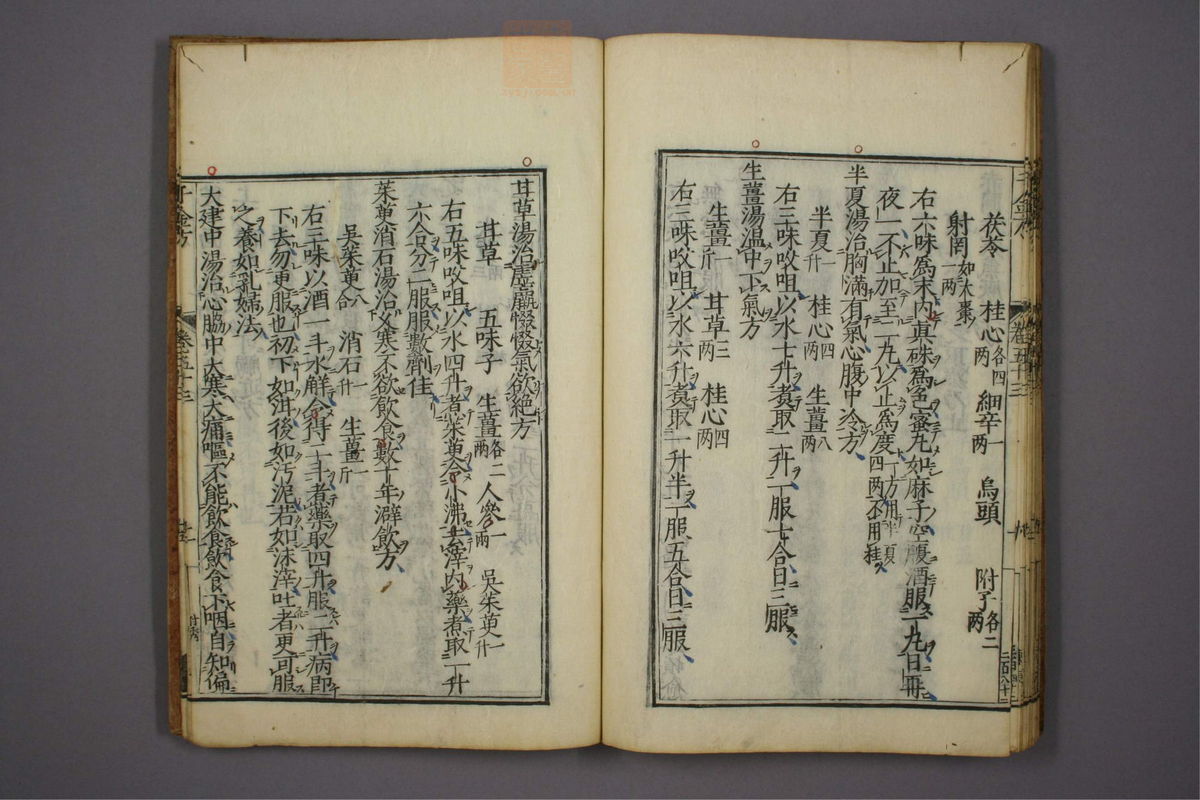 茯苓 桂心各四兩 細辛一兩 烏頭 附子各二兩
射罔如大棗一兩
右六味爲末內真硃爲色蜜丸如麻子空腹酒服一丸日再
夜一不止加至二丸以止爲度一方用半夏四兩不用桂
半夏湯治胸滿有氣心腹中冷方
半夏一升 桂心四兩 生薑八兩
右三味㕮咀以水七升煮取二升一服七合日三服
生薑湯溫中下氣方
生薑一斤 甘草三兩 桂心四兩
右三味㕮咀以水六升煮取一升半一服五合日三服
甘草湯治虛羸惙惙氣欲絕方
甘草 五味子 生薑各二兩 人參一兩 吳茱萸一升
右五味㕮咀以水四升煮茱萸令小沸去滓內藥煮取一升
六合分二服服數劑佳
茱萸消石湯治久寒不欲飲食數十年澼飲方
吳茱萸八合 消石一升 生薑一斤
右三味以酒一斗水解令得二斗煮藥取四升服二升病即
下去勿更服也初下如泔後如汚泥若如沫滓吐者更可服
之養如乳婦法
大建中湯治心脇中大寒大痛嘔不能飲食飲食下咽自知偏
千金方